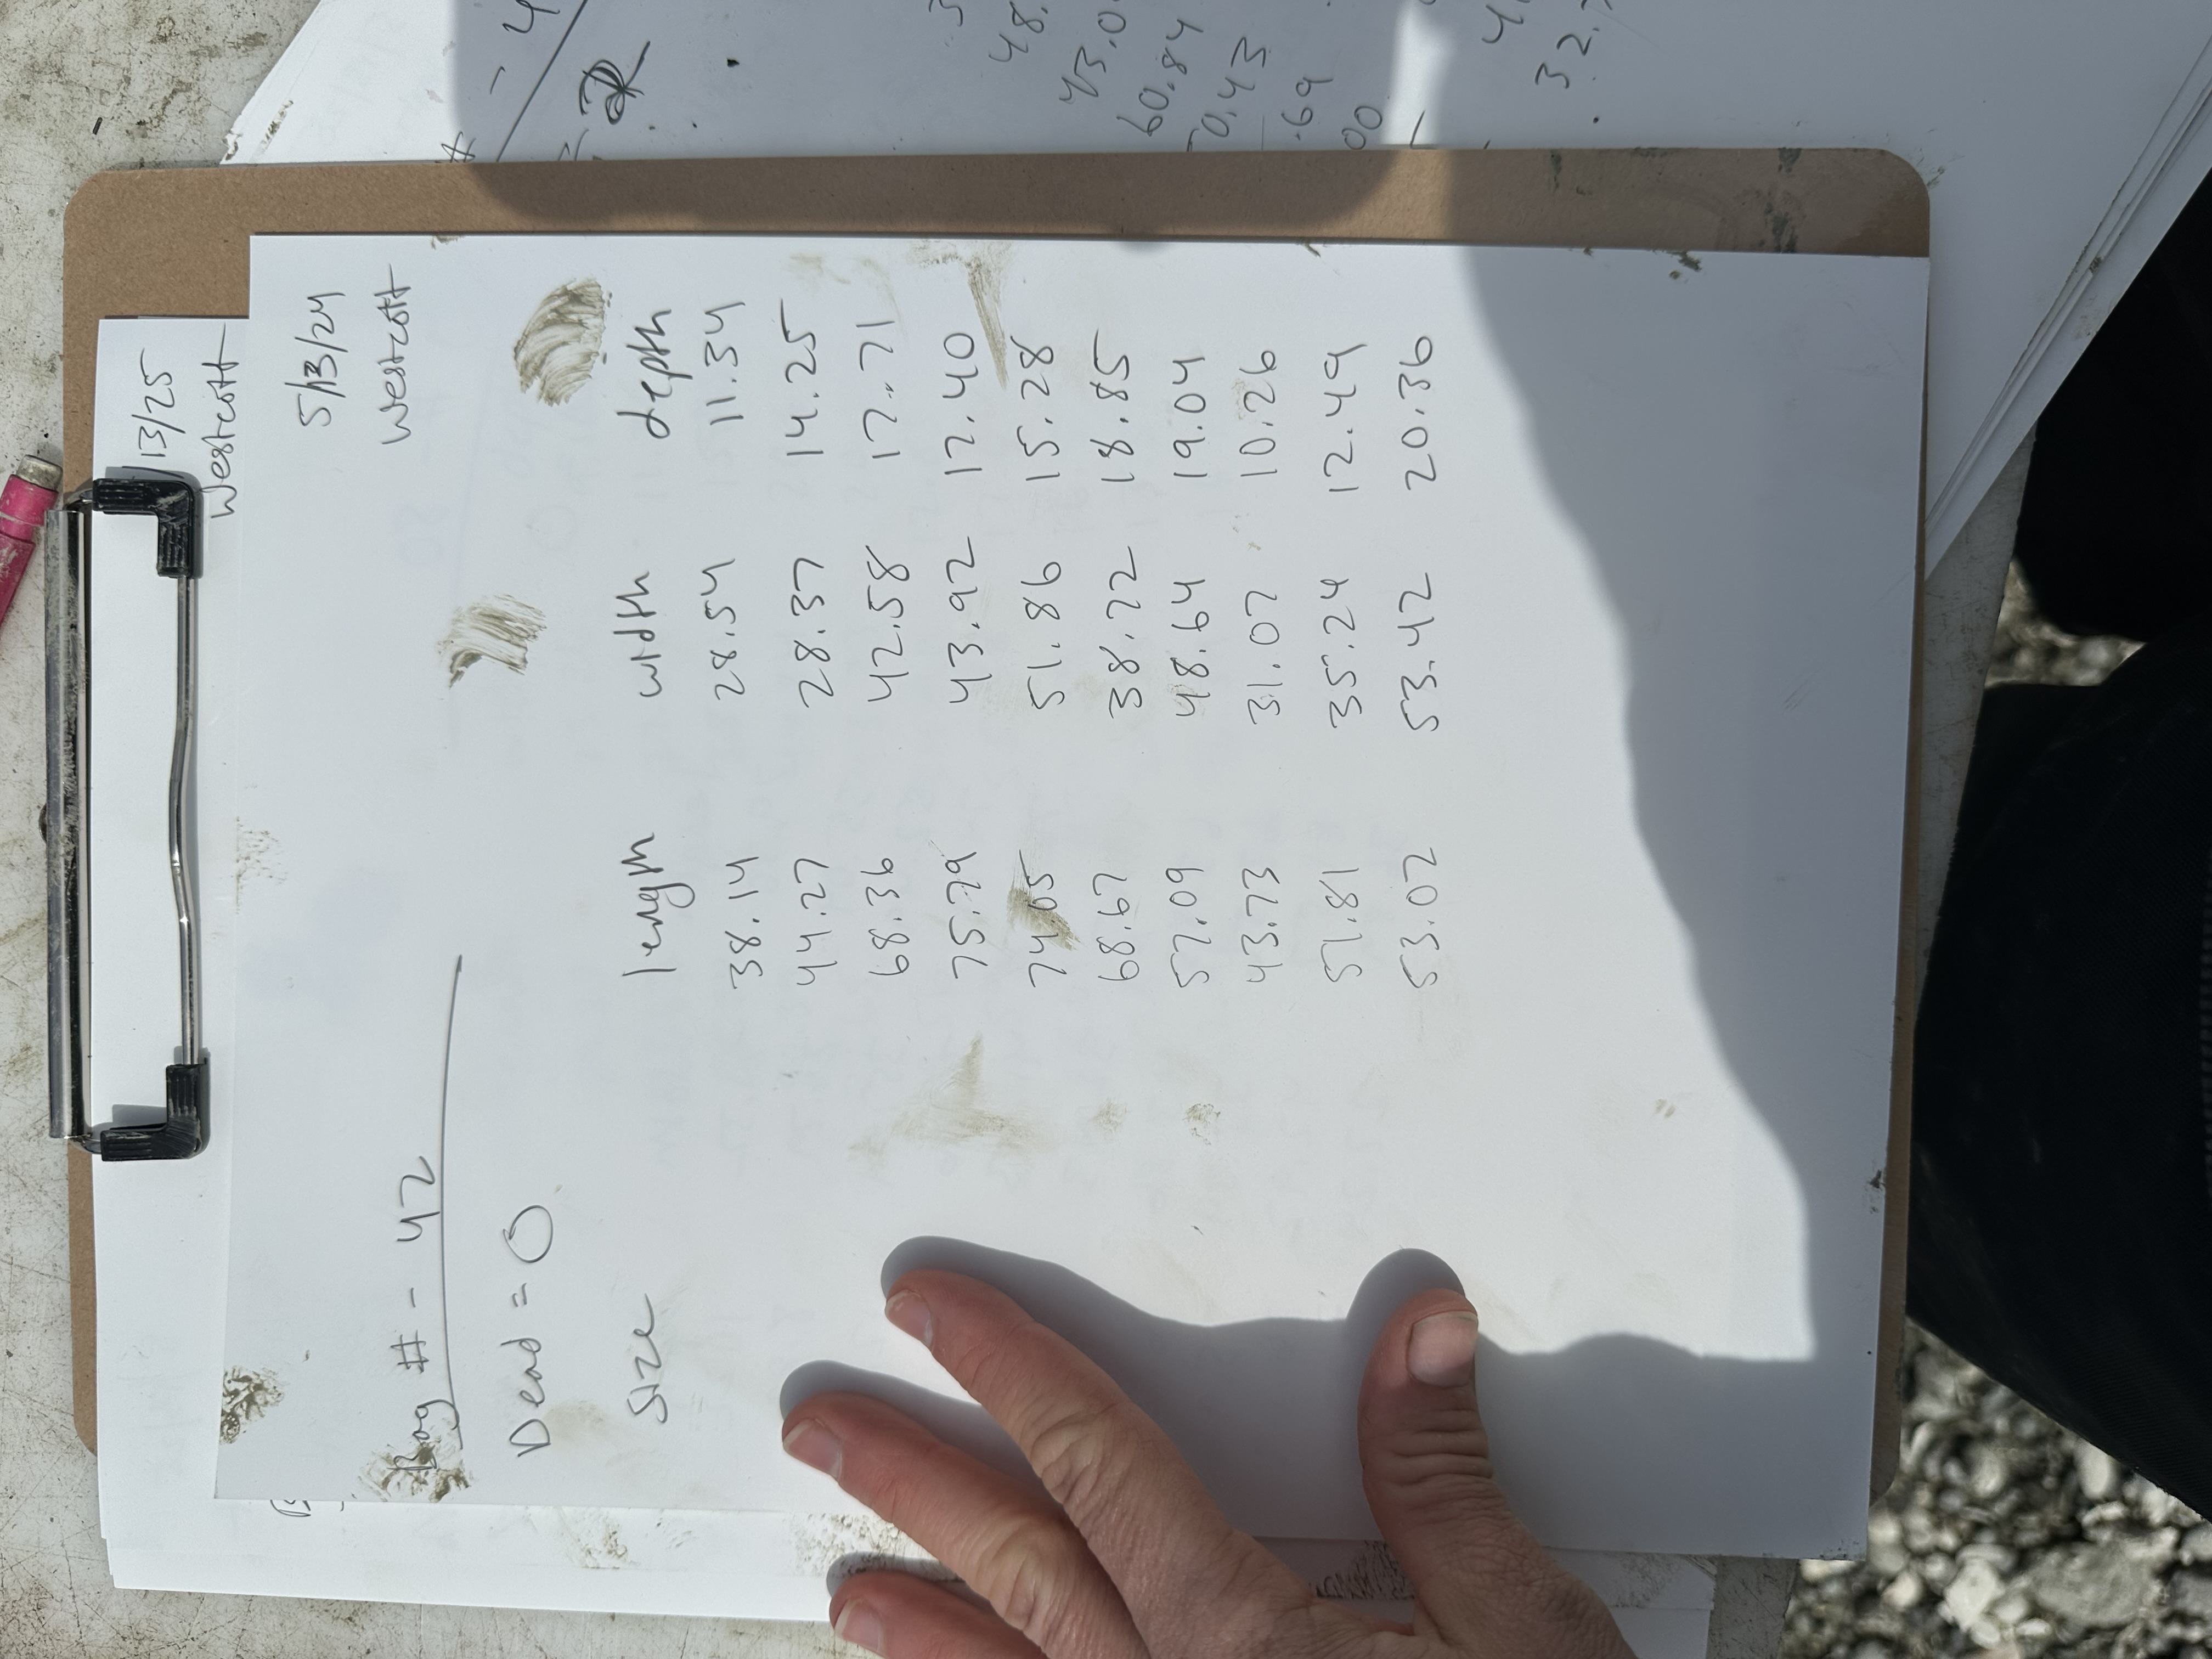 13/25
Westcott
5/13/24
Westcott
Bag # - 42
Dead = 0
Size length width depth
38.14 28.54 11.34
44.27 28.37 14.25
68.36 42.58 17.71
75.79 43.92 17.40
74.05 51.86 15.28
68.67 38.72 18.85
57.09 48.64 19.04
43.73 31.07 10.26
51.81 35.24 12.49
53.02 53.42 20.36
# - 4
48.
43.0
60.84
0.43
.69
00
32.7